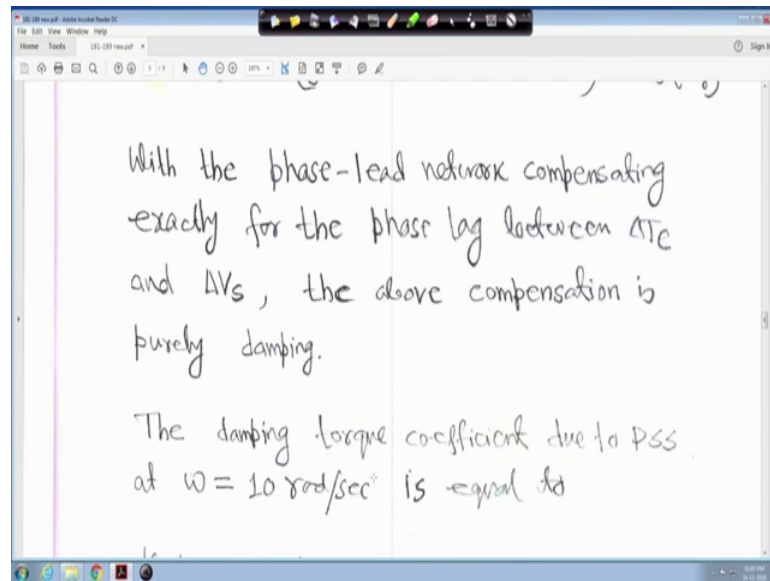 181-189 new.pdf - Adobe Acrobat Reader DC
File Edit View Window Help
Home Tools 181-189 new.pdf × Sign In
With the phase-lead network compensating
exactly for the phase lag between ΔTe
and ΔVs, the above compensation is
purely damping.
The damping torque co-efficient due to PSS
at ω = 10 rad/sec is equal to